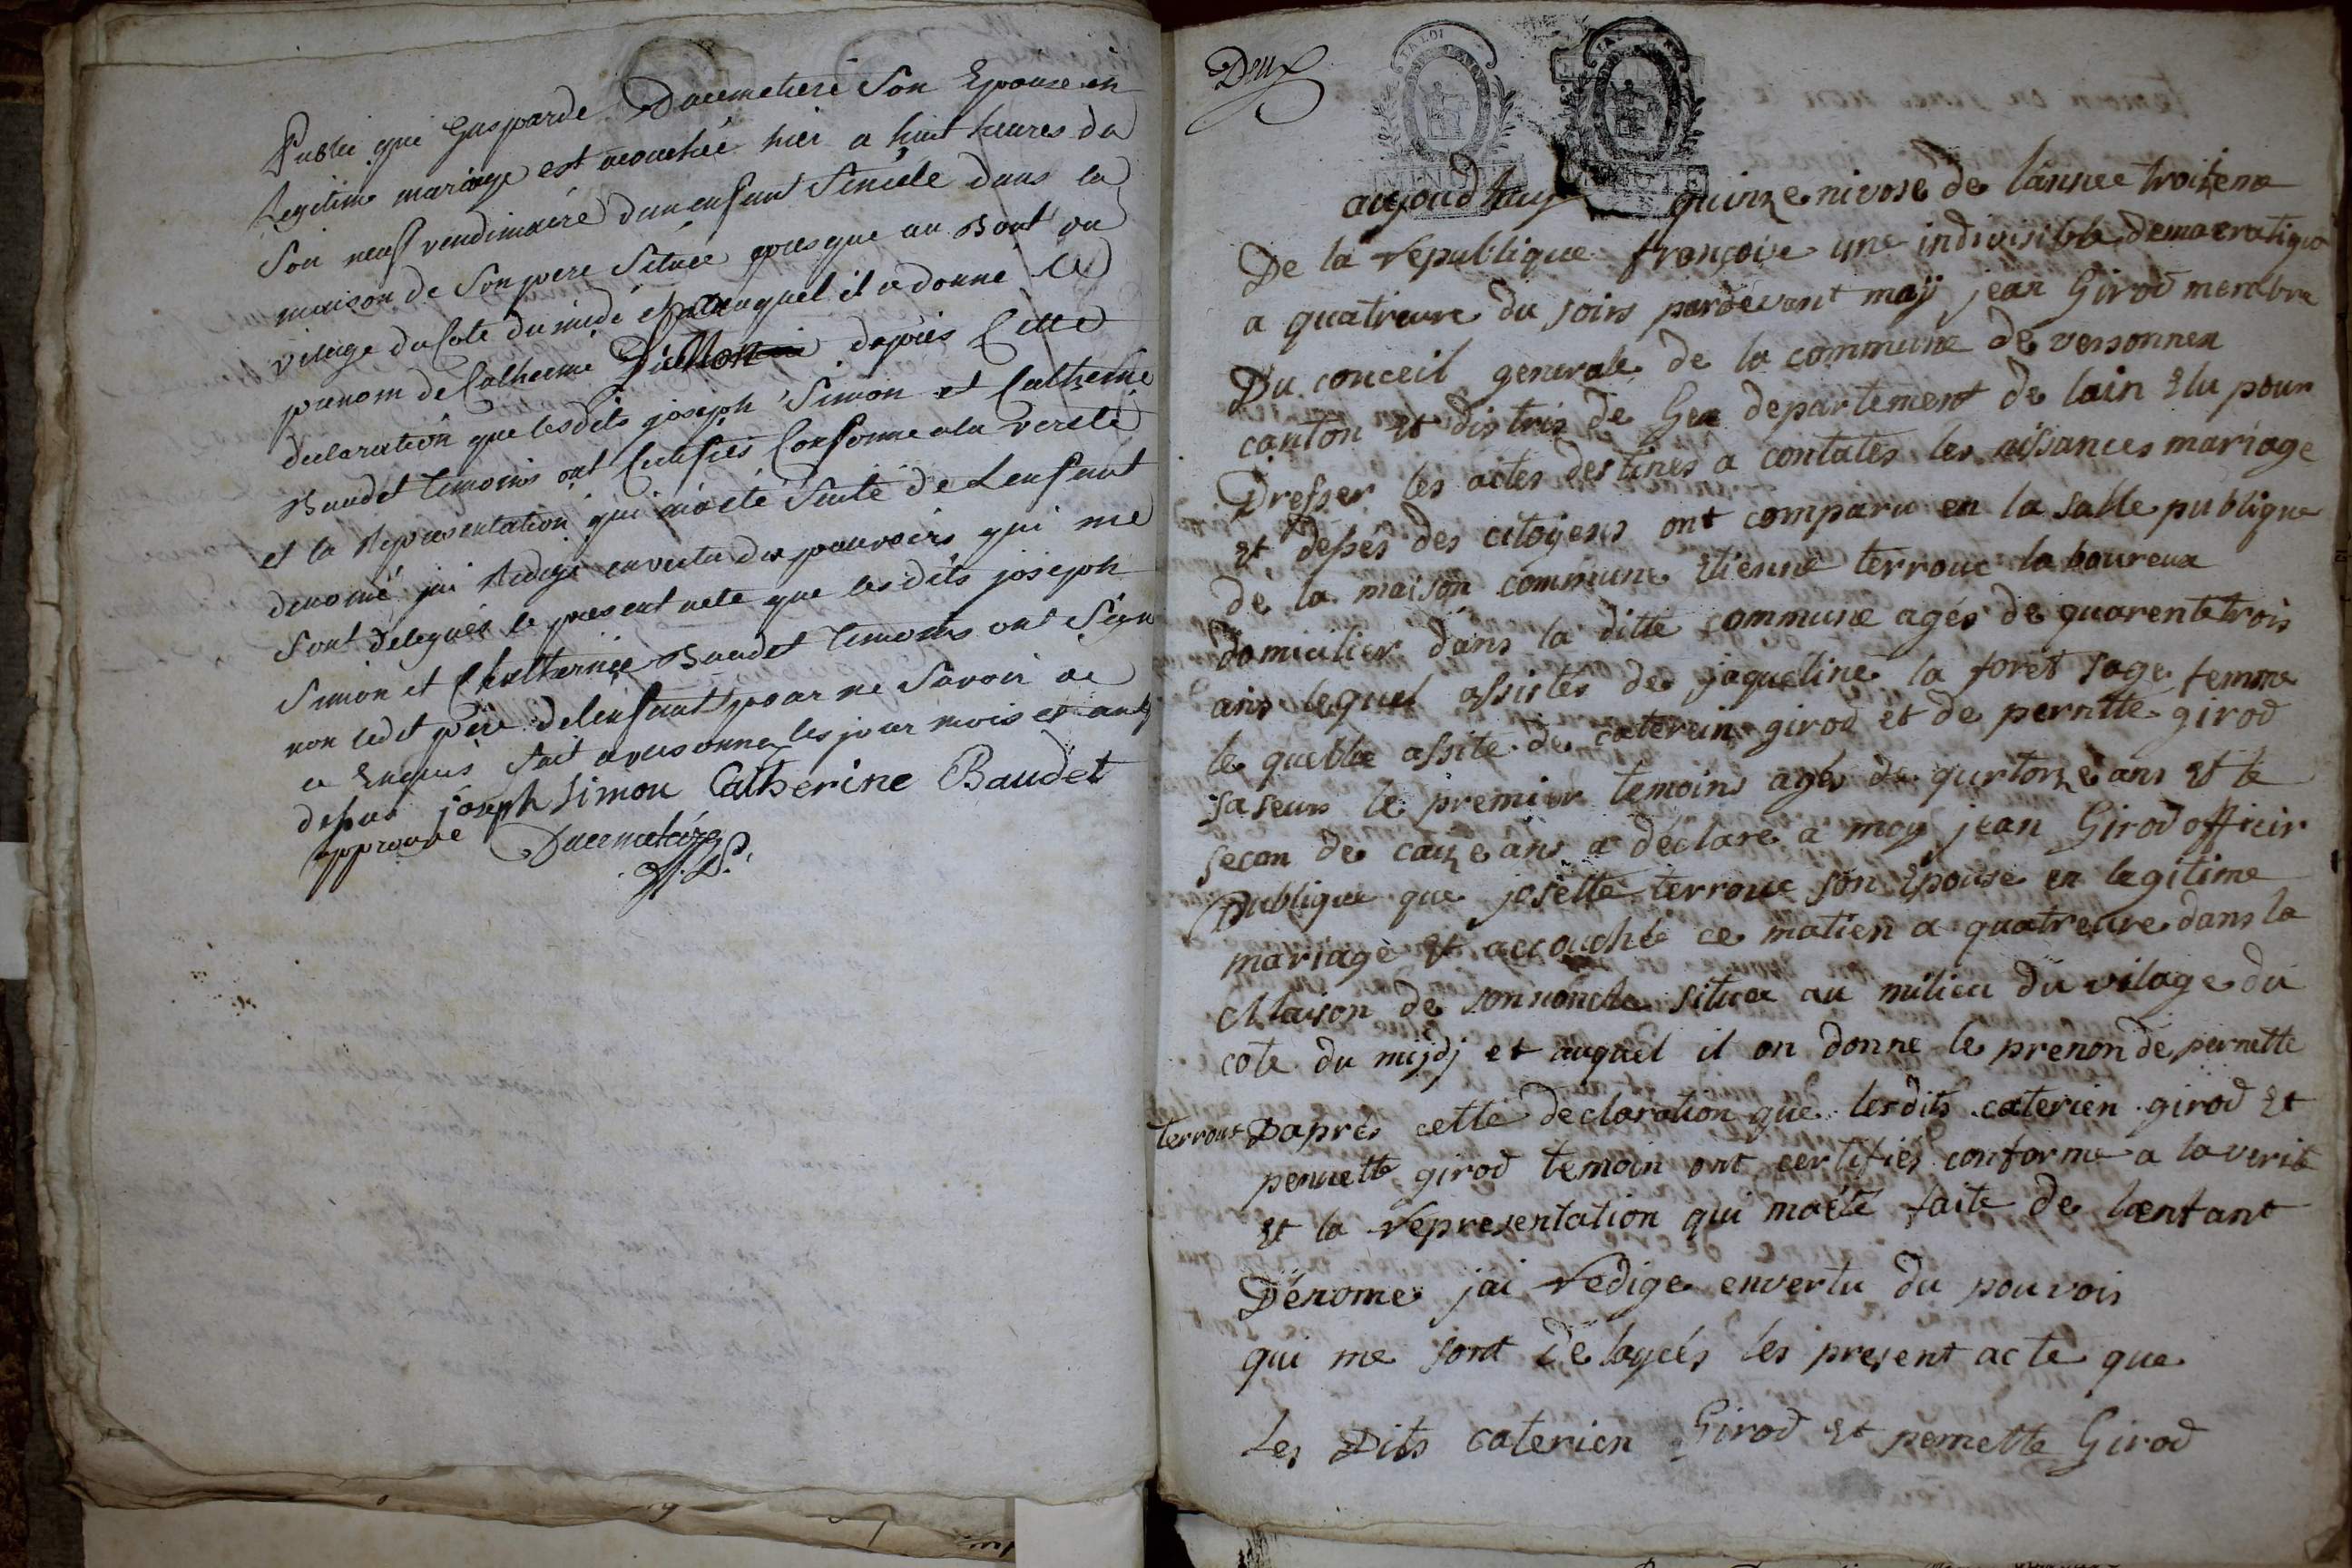 Public que Gasparde Ducimetiere Son Epouse en
Legitime mariage est acouchée hier a huit heures du
Soir neuf vendimaire dun enfant femele dans la
maison de Son pere Située presque au Bout du
vilage du Cote du midi et auquel il a donné le
prenom de Catherine dapres Cette
declaration que lesdits joseph Simon et Catherine
Baudet temoins ont Certifiés Conforme ala verité
et la Representation qui ma eté faite de Lenfant
denomé jai Redigé en vertu des pouvoirs qui me
Sont delegués le present acte que les dits joseph
Simon et Chatherine Baudet temoins ont Signé
non ledit père de lenfant pour ne Savoir de
ce Enquis fait a versonnex les jour mois et an
desus joseph Simon Catherine Baudet
approuvé Ducimetière
Deux
LA LOI
aujoudhuy quinze nivose de lannee troiseme
De la republique françoise une indivisible democratique
a quatreure du soirs pardevant mojj jean Girod membre
Du conceil generale de la commune de versonnex
canton et distris de Gex departement de lain Elu pour
Dresser les actes destines a contates les naissances mariage
et desés des citoyens ont comparu en la salle publique
de la maison commune Etienne terroue laboureux
domicilier dans la ditte commune agés de quarente trois
ans lequel assistés de jaqueline la foret sage femme
le quelle assité de caterien girod et de pernette girod
sa seurs le premier temoins agés de qurtorze ans et le
secon de caize ans a déclare a moy jean Girod officir
publique que josette terroue son Epouse en legitime
mariage et accouchée ce matien a quatreure dans la
Maison de sonnoncle situee au milieu du vilage du
cote du mijdj et auquel il on donne le prenon de pernette
terroux Dapres cette declaration que lesdits caterien girod et
pernette girod temoin ont certifiés conforme a la verite
et la representation qui maéte faite de laenfant
Dénome jai redige envertu du pouvois
qui me sont délagués les present acte que
Les Dits caterien Girod et pernette Girod